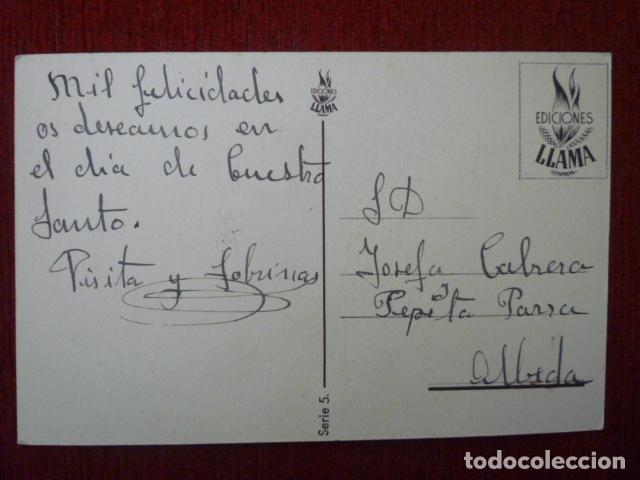 Mil felicidades
os deseamos en
el dia de buestro
Santo.
Pisita y Sobrinas
EDICIONES
LLAMA
Serie 5.
EDICIONES
LLAMA
S D
Josefa Cabrera
y
Pepita Parra
todocoleccion.net